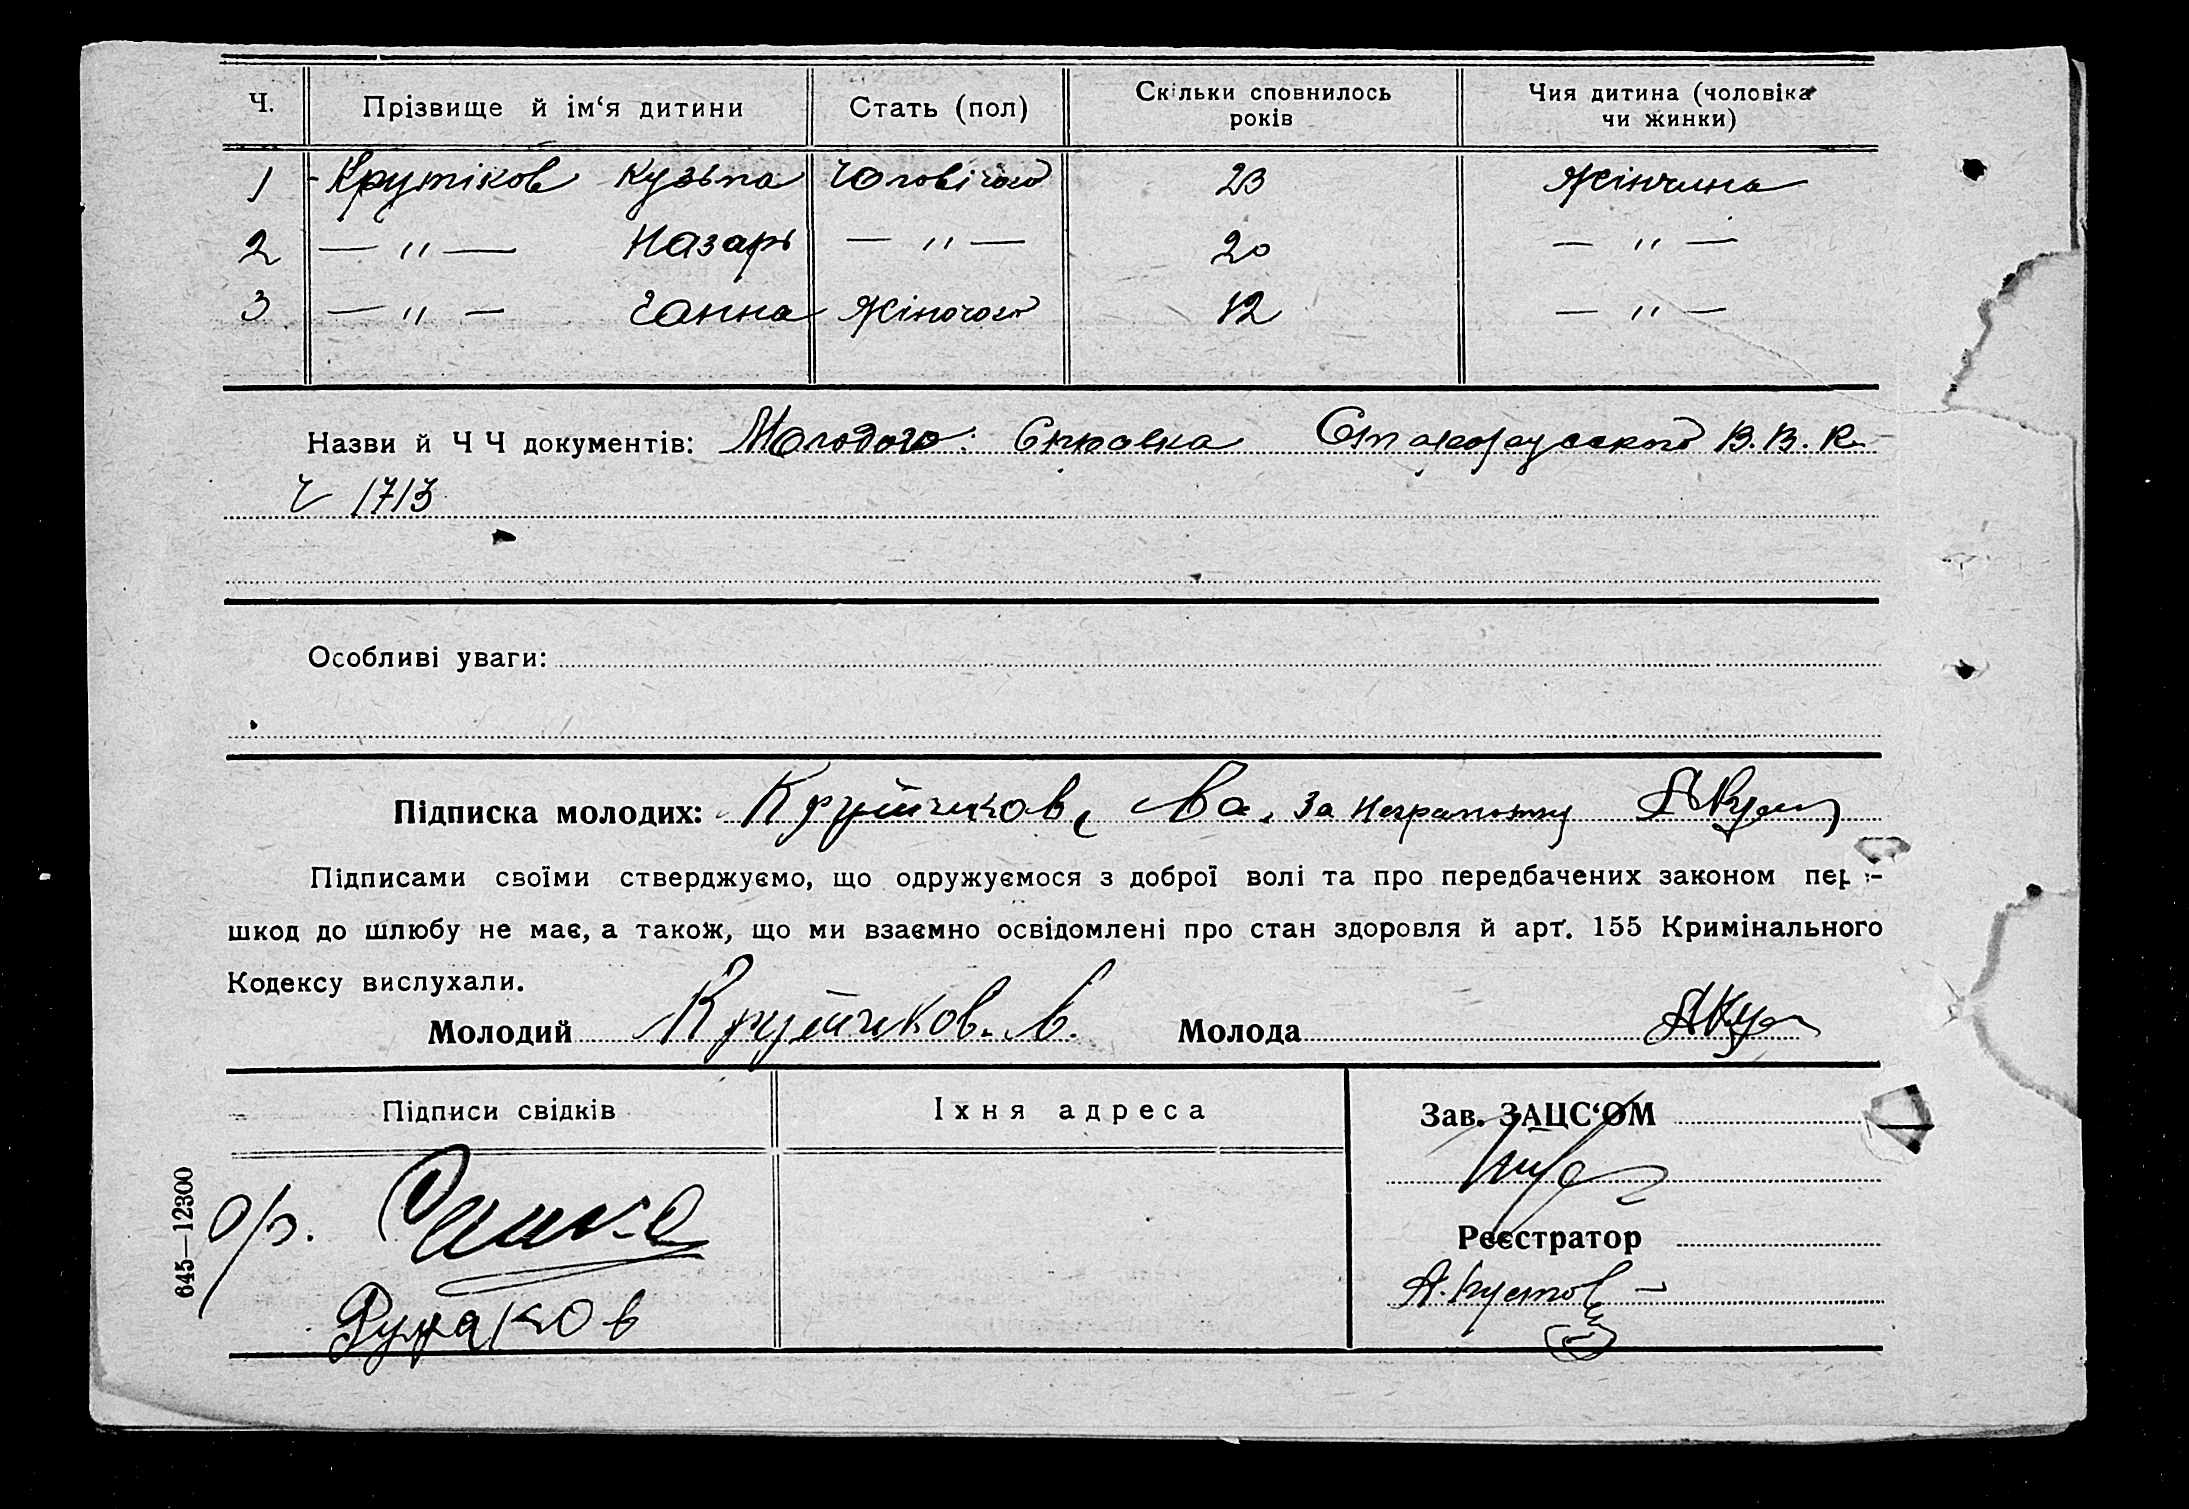 Ч. Прізвище й ім‘я дитини Стать (пол) Скільки сповнилось років Чия дитина (чоловіка чи жинки)
1 Крутіков Кузьма Чоловічого 23 Жінчина
2 — „ — Назарь — „ — 20 — „ —
3 — „ — Ганна Жіночого 12 — „ —
Назви й Ч Ч документів: Молодого: Справка В. В. К.
Ч 1713
Особливі уваги:
Підписка молодих: за неграмотну
Підписами своїми стверджуємо, що одружуємося з доброї волі та про передбачених законом
шкод до шлюбу не має, а також, що ми взаємно освідомлені про стан здоровля й арт. 155 Кримінального
Кодексу вислухали.
Молодий Молода
Підписи свідків Їхня адреса Зав. ЗАЦС‘ОМ
Реєстратор
645—12300